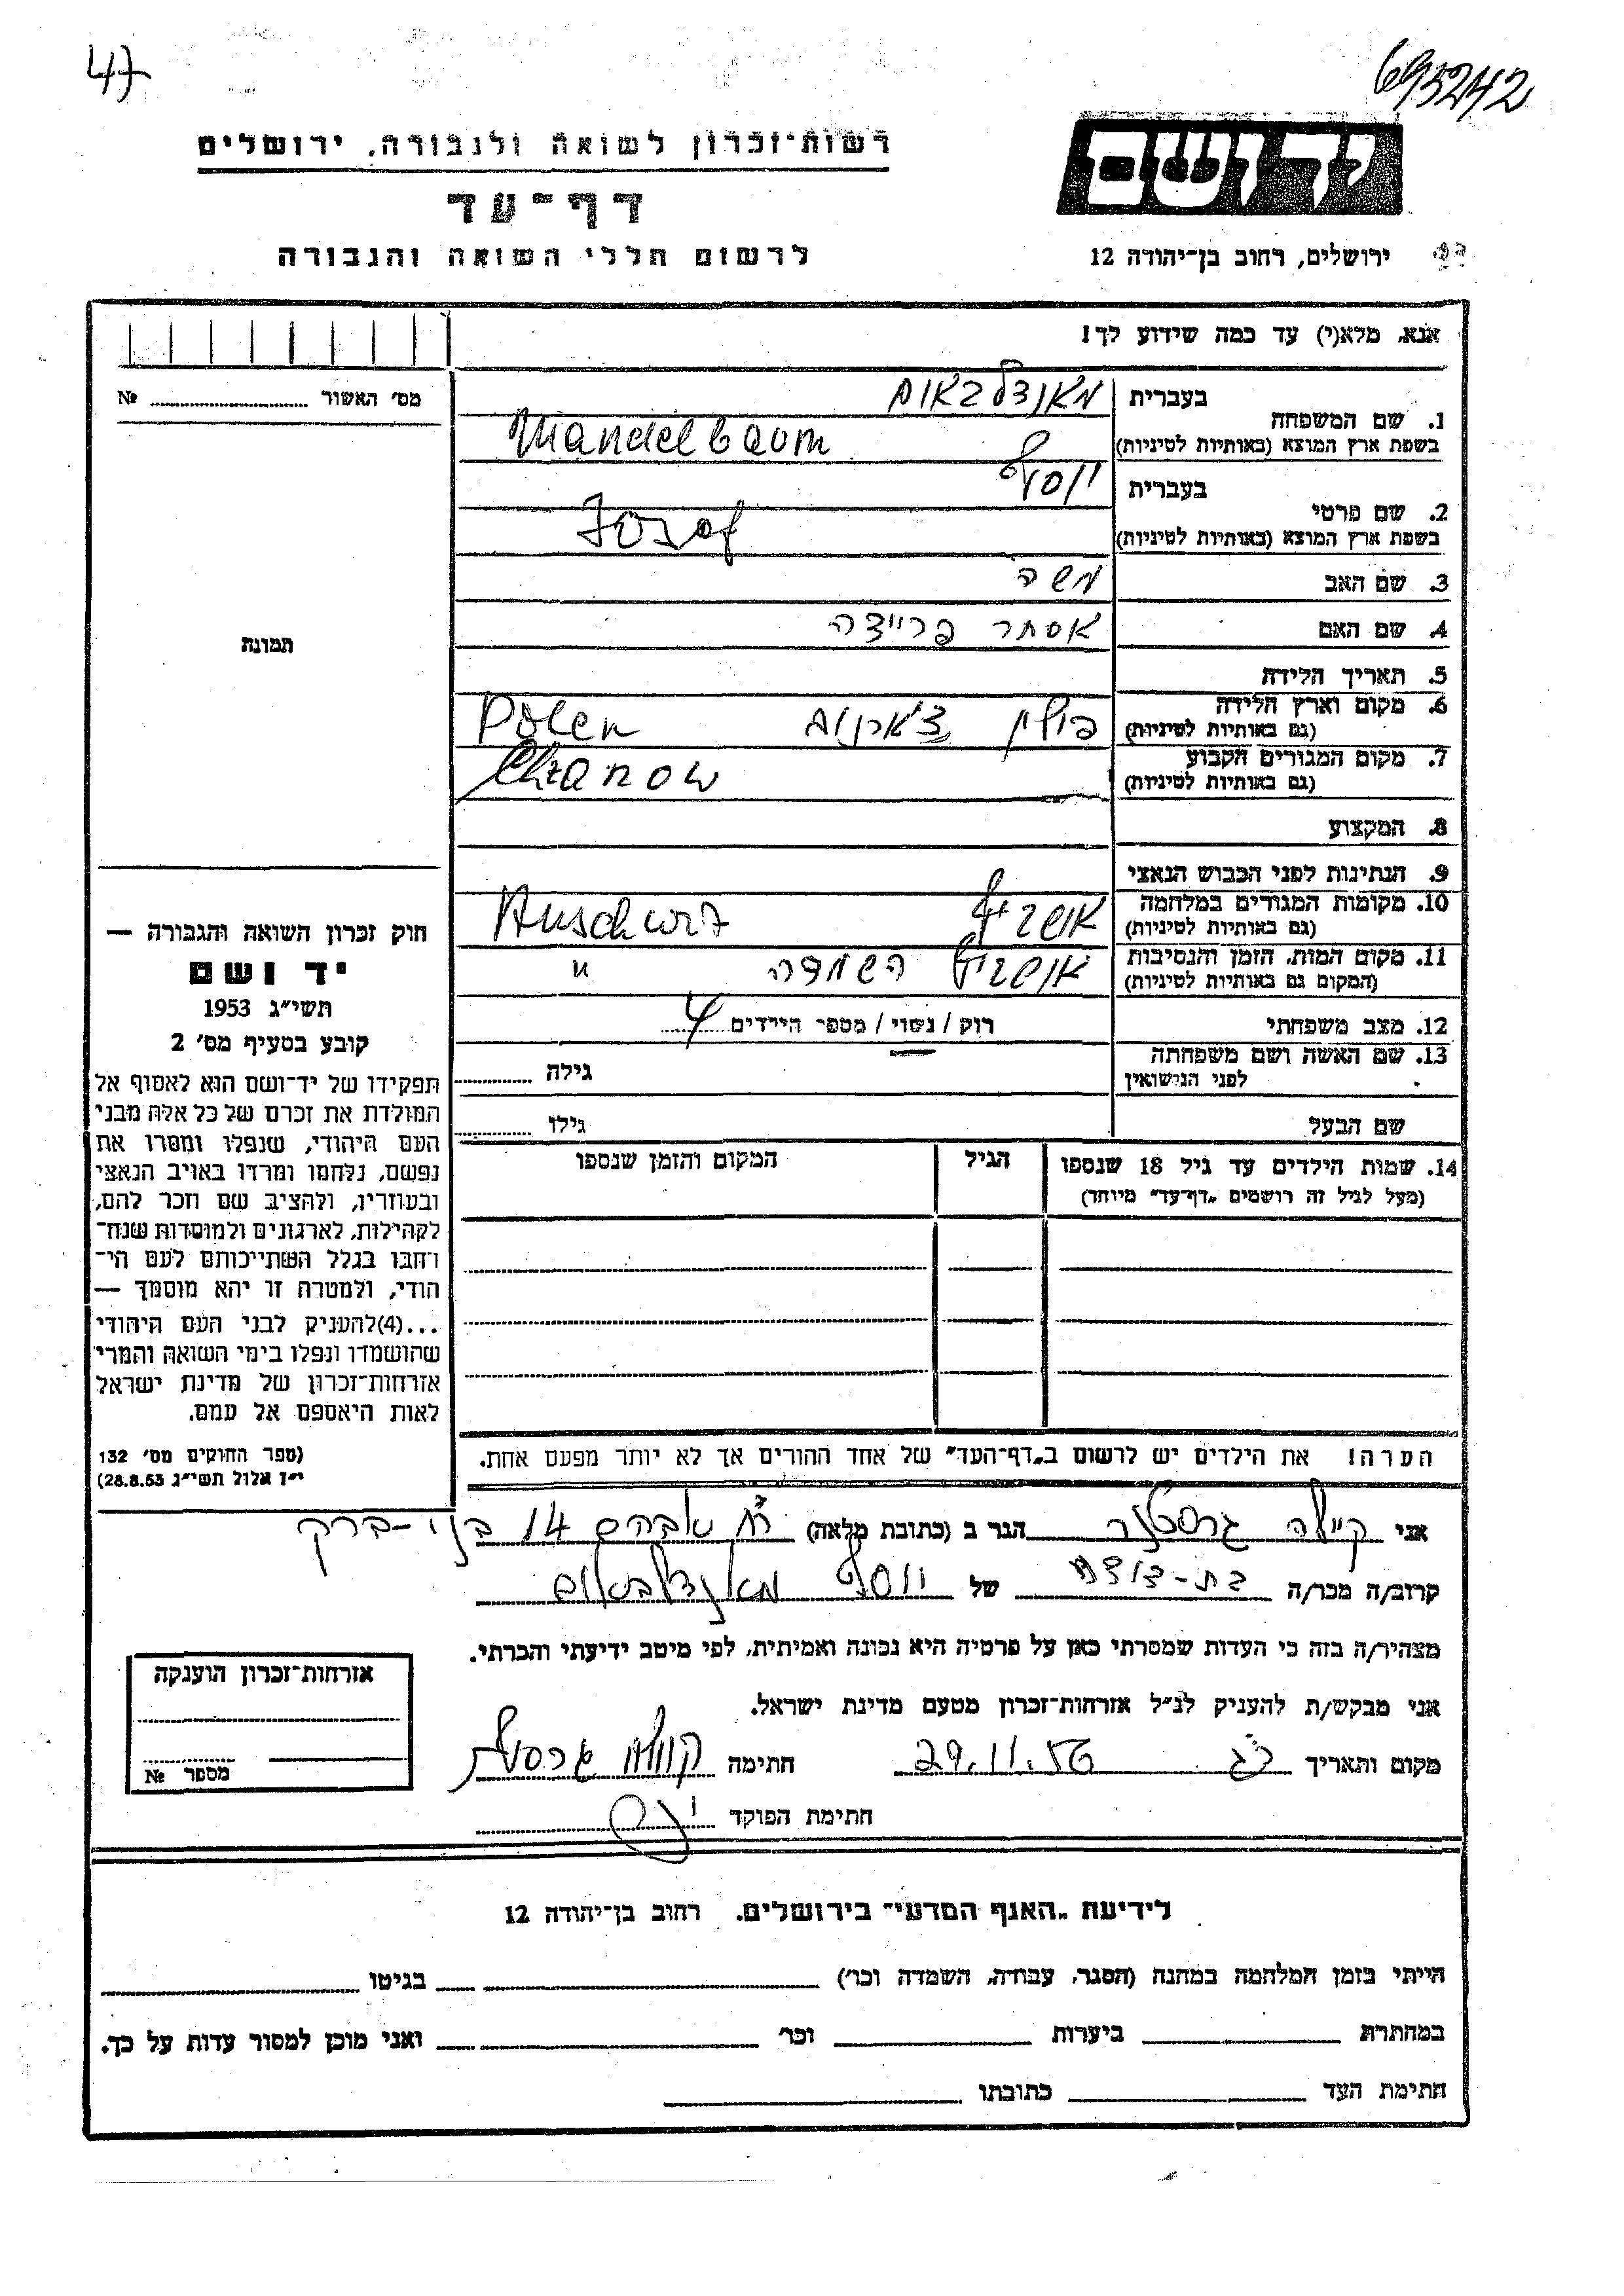 47
695242
רשות־זכרון לשואה ולגבורה, ירושלים
יד ושם
דף־עד
לרשום חללי השואה והגבורה
ירושלים, רחוב בן־יהודה 12
אנא, מלא(י) עד כמה שידוע לך!
מס׳ האשור №
בעברית מאנדלבאום
1. שם המשפחה
בשפת ארץ המוצא (באותיות לטיניות) Mandelbaum
בעברית יוסף
2. שם פרטי
בשפת ארץ המוצא (באותיות לטיניות) Jozef
3. שם האב משה
4. שם האם אסתר פריידה
תמונה
5. תאריך הלידה
6. מקום וארץ הלידה
(גם באותיות לטיניות) פולין Polen
7. מקום המגורים הקבוע
(גם באותיות לטיניות) Chzanow
8. המקצוע
9. הנתינות לפני הכבוש הנאצי
10. מקומות המגורים במלחמה
(גם באותיות לטיניות) אושביץ
11. מקום המות, הזמן והנסיבות
(המקום גם באותיות לטיניות) השמדה "
12. מצב משפחתי רוק / נשוי / מספר הילדים 4
13. שם האשה ושם משפחתה
לפני הנישואין גילה
שם הבעל גילו
14. שמות הילדים עד גיל 18 שנספו הגיל המקום והזמן שנספו
(מעל לגיל זה רושמים „דף־עד״ מיוחד)
חוק זכרון השואה והגבורה —
יד ושם
תשי״ג 1953
קובע בסעיף מס׳ 2
תפקידו של יד־ושם הוא לאסוף אל
המולדת את זכרם של כל אלה מבני
העם היהודי, שנפלו ומסרו את
נפשם, נלחמו ומרדו באויב הנאצי
ובעוזריו, ולהציב שם וזכר להם,
לקהילות, לארגונים ולמוסדות שנח־
רבו בגלל השתייכותם לעם הי־
הודי, ולמטרה זו יהא מוסמך —
...(4)להעניק לבני העם היהודי
שהושמדו ונפלו בימי השואה והמרי
אזרחות־זכרון של מדינת ישראל
לאות היאספם אל עמם.
(ספר החוקים מס׳ 132
י״ז אלול תשי״ג 28.8.53)
הערה! את הילדים יש לרשום ב„דף־העד״ של אחד ההורים אך לא יותר מפעם אחת.
אני קיילה גרסטנר הגר ב (כתובת מלאה) אברהם 14 בני-ברק
קרוב/ה מכר/ה בת-דודה של יוסף מאנדלבאום
מצהיר/ה בזה כי העדות שמסרתי כאן על פרטיה היא נכונה ואמיתית, לפי מיטב ידיעתי והכרתי.
אני מבקש/ת להעניק לנ״ל אזרחות־זכרון מטעם מדינת ישראל.
מקום ותאריך 29.11.56 חתימה
חתימת הפוקד
אזרחות־זכרון הוענקה
מספר №
לידיעת „האגף המדעי״ בירושלים. רחוב בן־יהודה 12
הייתי בזמן המלחמה במחנה (הסגר, עבודה, השמדה וכר׳) בגיטו
במחתרת ביערות וכר׳ ואני מוכן למסור עדות על כך.
חתימת העד כתובתו